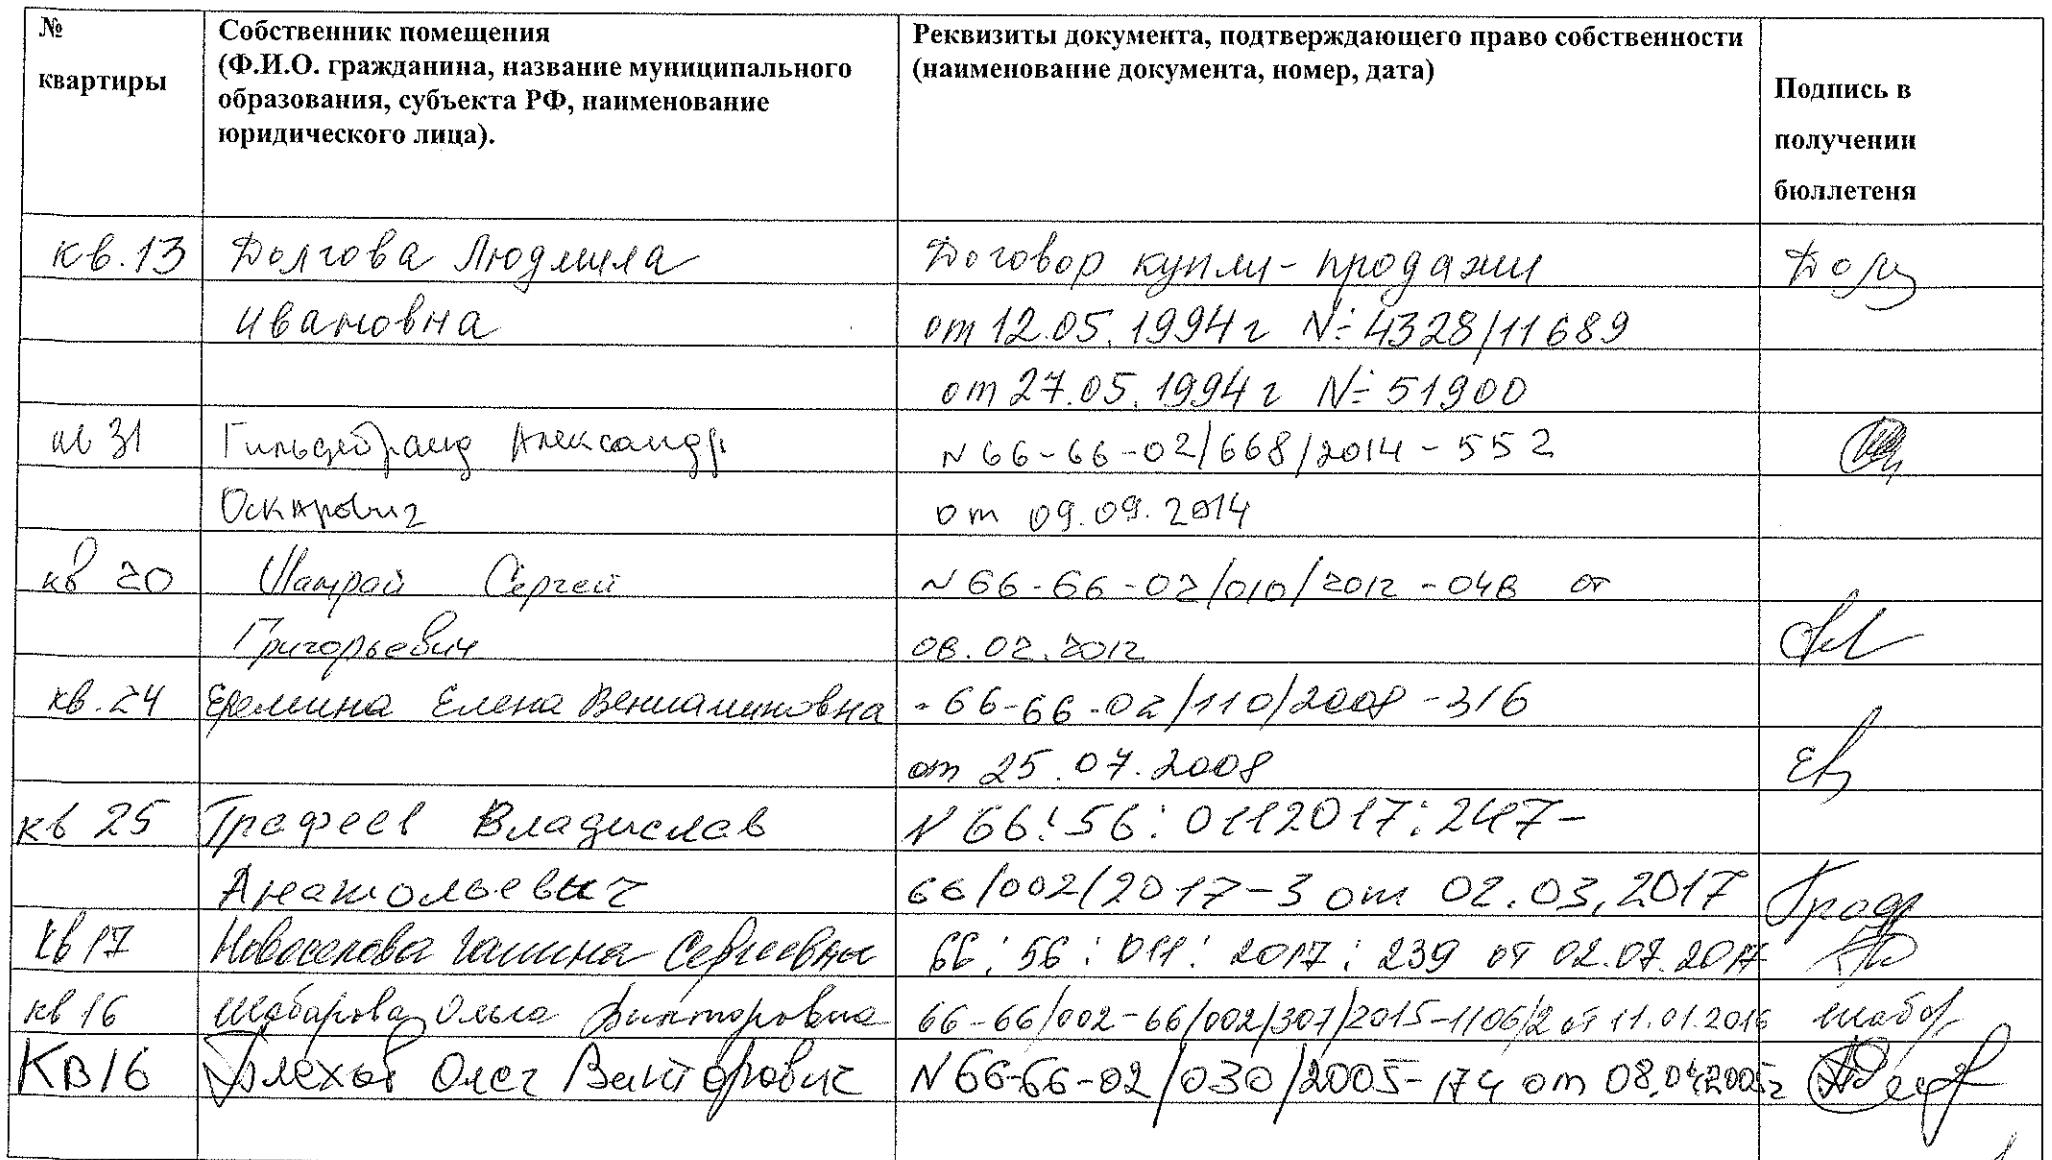 №
квартиры
Собственник помещения
(Ф.И.О. гражданина, название муниципального
образования, субъекта РФ, наименование
юридического лица).
Реквизиты документа, подтверждающего право собственности
(наименование документа, номер, дата)
Подпись в
получении
бюллетеня
кв.13 Долгова Людмила Договор купли-продажи
Ивановна от 12.05.1994г № 4328/11689
от 27.05.1994г № 51900
кв 31 Гильдебранд Александр N 66-66-02/668/2014-552
Оскарович от 09.09.2014
кв 20 Сергей N 66-66-02/010/2012-048 от
Григорьевич 08.02.2012
кв.24 Еремина Елена Вениаминовна -66-66-02/110/2008-316
от 25.07.2008
кв 25 Графеев Владислав N 66:56:0112017:247-
Анатольевич 66/002/2017-3 от 02.03.2017
кв 17 Новоселова Галина Сергеевна 66:56:011:2017:239 от 02.07.2017
кв 16 Шабарова Ольга Викторовна 66-66/002-66/002/307/2015-1106/2 от 11.01.2016
Кв16 Олег Викторович N 66-66-02/030/2005-174 от 08.04.2005г